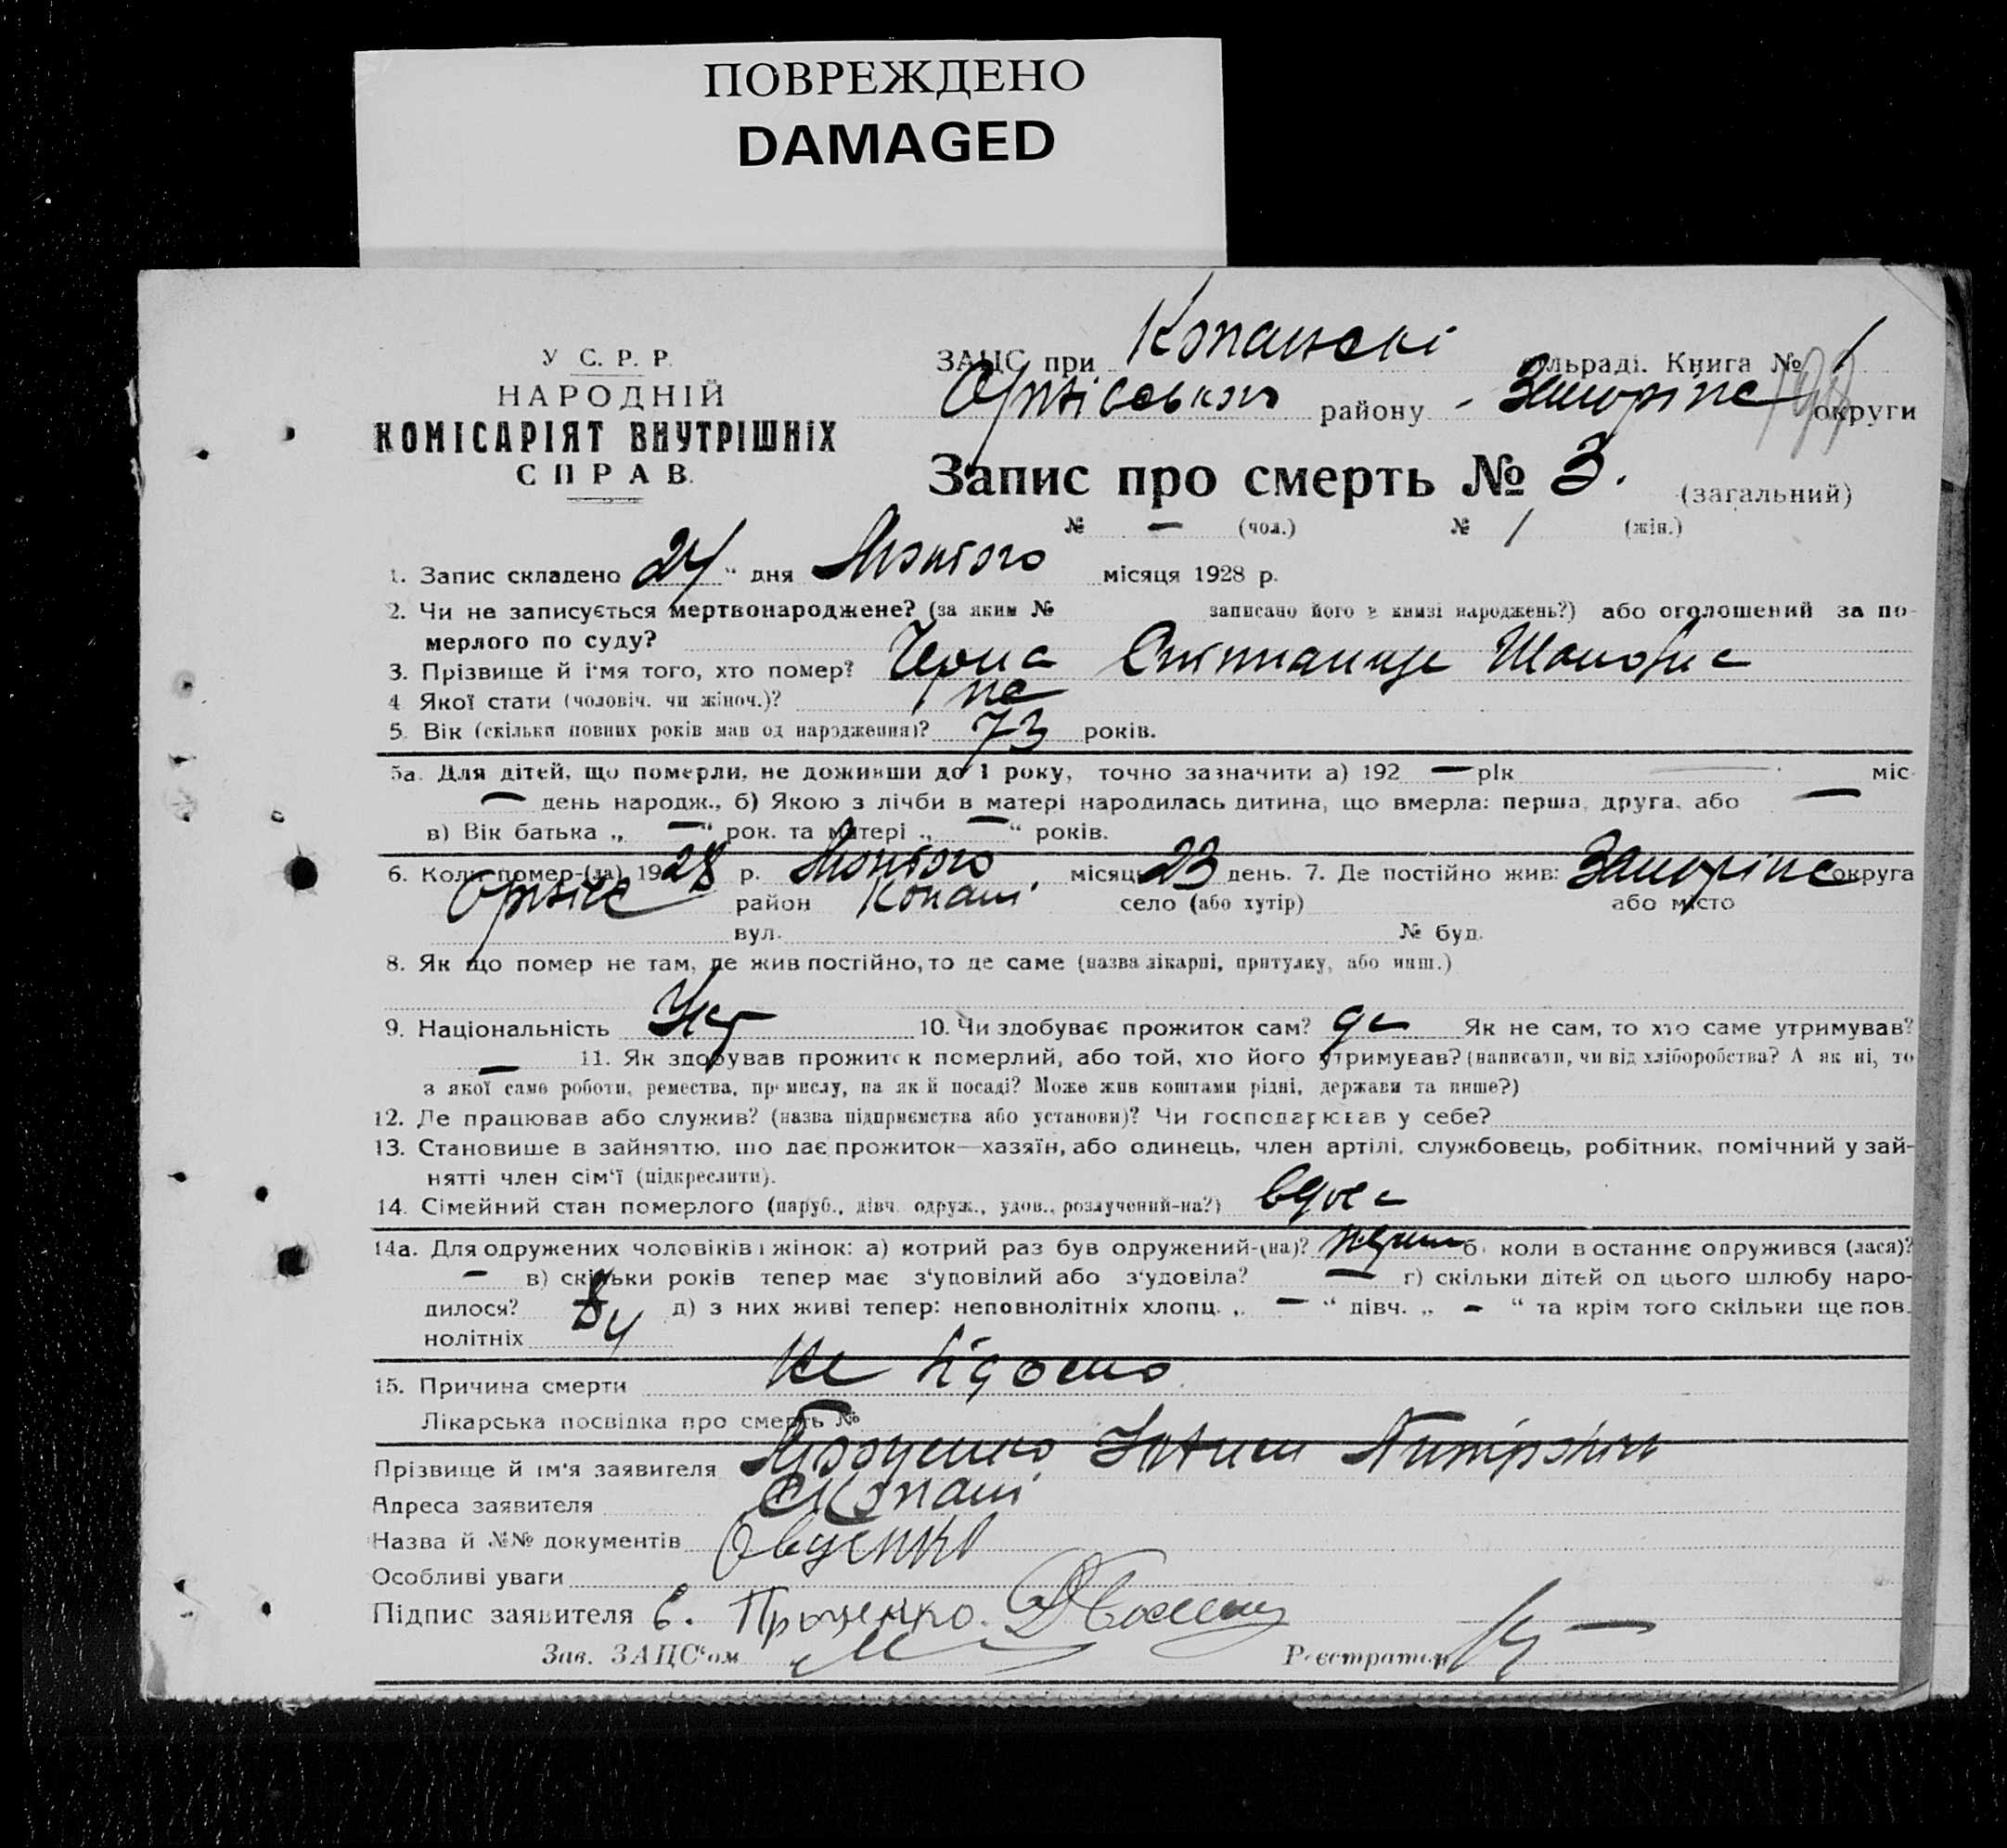 ПОВРЕЖДЕНО
DAMAGED
У С. Р. Р.
НАРОДНІЙ
КОМІСАРІЯТ ВНУТРІШНІХ
СПРАВ.
ЗАЦС при Копанські сільраді. Книга № 1
району округи
Запис про смерть № 3. (загальний)
№ — (чол.) № 1 (жін.)
1. Запис складено 24 " дня Лютого місяця 1928 р.
2. Чи не записується мертвонароджене? (за яким № записано його в книзі народжень?) або оголошений за по-
мерлого по суду?
3. Прізвище й і'мя того, хто помер? Черна
4 Якої стати (чоловіч. чи жіноч.)?
5. Вік (скільки повних років мав од народження)? 73 років.
5а. Для дітей, що померли, не доживши до 1 року, точно зазначити а) 192 — рік — міс
— день народж., б) Якою з лічби в матері народилась дитина, що вмерла: перша, друга, або —
в) Вік батька „ — " рок. та матері „ — " років.
6. Коли помер-(ла) 1928 р. Лютого місяць 23 день. 7. Де постійно жив: округа
район Копані село (або хутір) або місто
вул. № буд.
8. Як що помер не там, де жив постійно, то де саме (назва лікарні, притулку, або инш.)
9. Національність Укр 10. Чи здобуває прожиток сам? Як не сам, то хто саме утримував?
— 11. Як здобував прожиток померлий, або той, хто його утримував? (написати, чи від хліборобства? А як ні, то
з якої саме роботи, ремества, промислу, на якій посаді? Може жив коштами рідні, держави та инше?)
12. Де працював або служив? (назва підприємства або установи)? Чи господарював у себе?
13. Становище в зайняттю, що дає прожиток—хазяїн, або одинець, член артілі, службовець, робітник, помічний у зай-
нятті член сім'ї (підкреслити).
14. Сімейний стан померлого (паруб., дівч. одруж., удов., розлучений-на?) вдова
14а. Для одружених чоловіків і жінок: а) котрий раз був одружений-(на)? б. коли в останнє одружився (лася)?
— в) скільки років тепер має з'уповілий або з'удовіла? — г) скільки дітей од цього шлюбу наро-
дилося? д) з них живі тепер: неповнолітніх хлопц. „ — " дівч. „ — " та крім того скільки ще пов.
нолітніх 4
15. Причина смерти Не відомо
Лікарська посвідка про смерть №
Прізвище й ім'я заявителя
Адреса заявителя с Копані
Назва й №№ документів
Особливі уваги
Підпис заявителя Є. Проценко.
Зав. ЗАЦС'ом Реєстратор